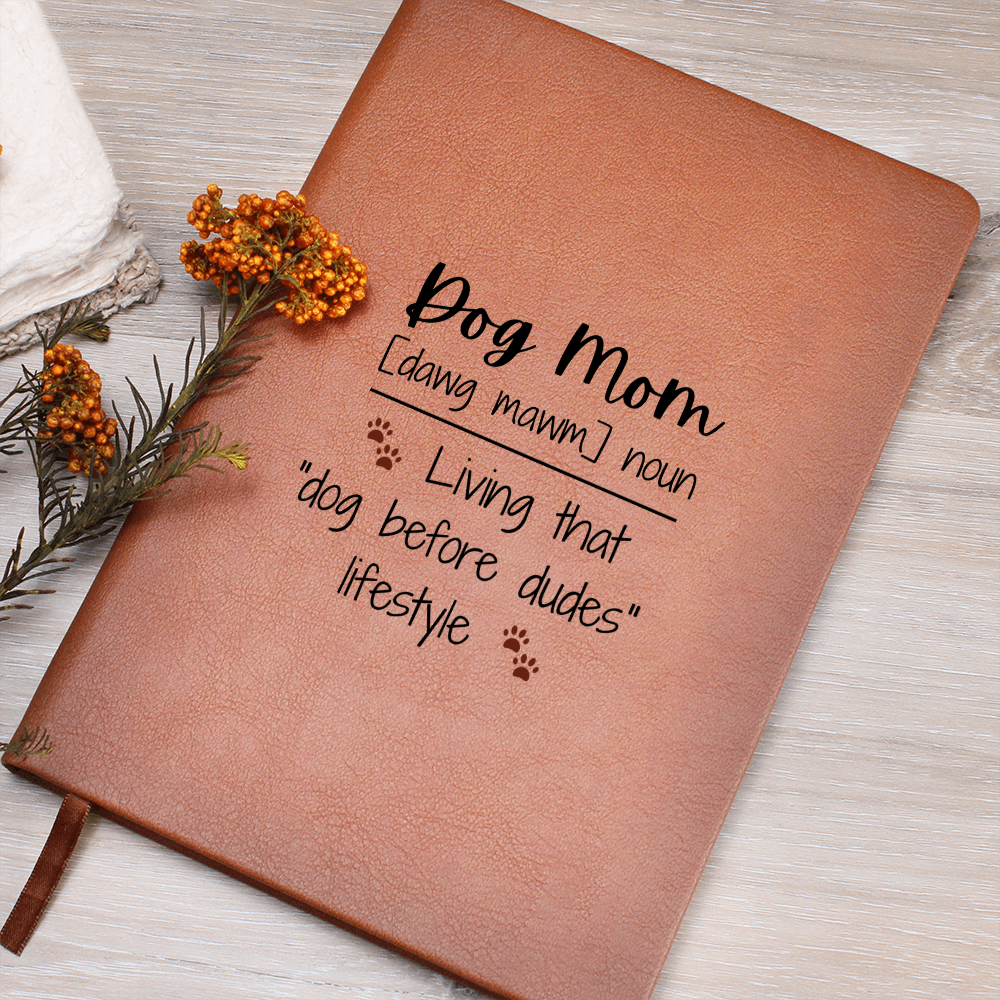 Dog Mom
[dawg mawm] noun
Living that
"dog before dudes"
lifestyle